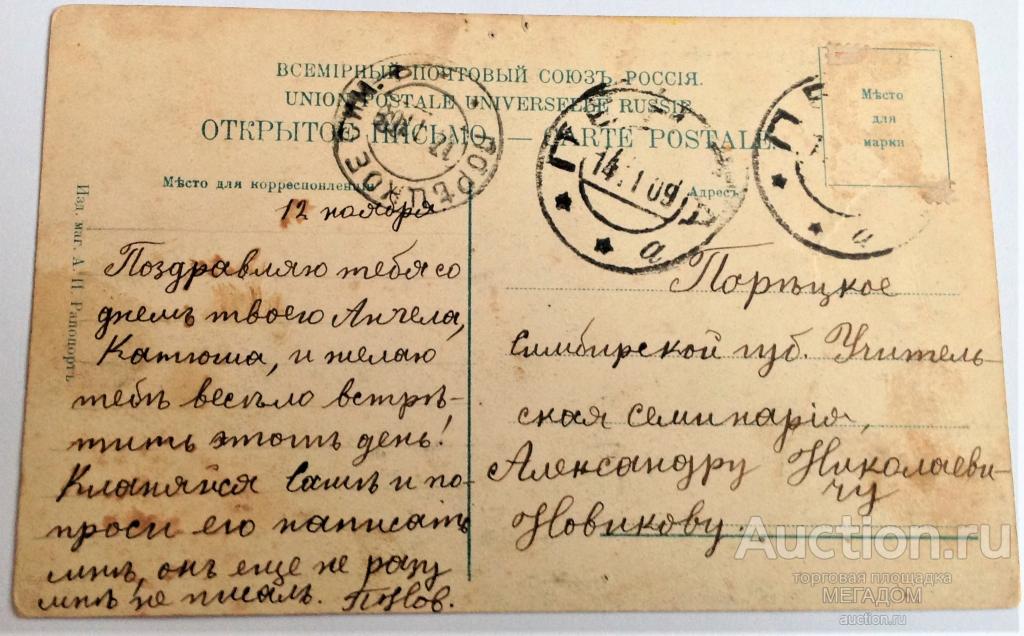 ВСЕМІРНЫЙ ПОЧТОВЫЙ СОЮЗЪ. РОССІЯ.
UNION POSTALE UNIVERSELLE RUSSIE
ОТКРЫТОЕ ПИСЬМО — CARTE POSTALE
Мѣсто
для
марки
Мѣсто для корреспонденціи
Адресъ
14.1.09
а
а
Изд. маг. А. И. Рапопортъ
12 ноября
Поздравляю тебя со
днемъ твоего Ангела,
Катюша, и желаю
тебѣ весьло встрѣ-
тить этотъ день!
Кланяйся Сашѣ и по-
проси его написать
мнѣ, онъ еще не разу
мнѣ не писалъ. П.Нов.
Порѣцкое
Симбирской губ. Учитель-
ская семинарія,
Александру Николаеви-
чу
Новикову.
Auction.ru
торговая площадка
МЕГАДОМ
auction.ru